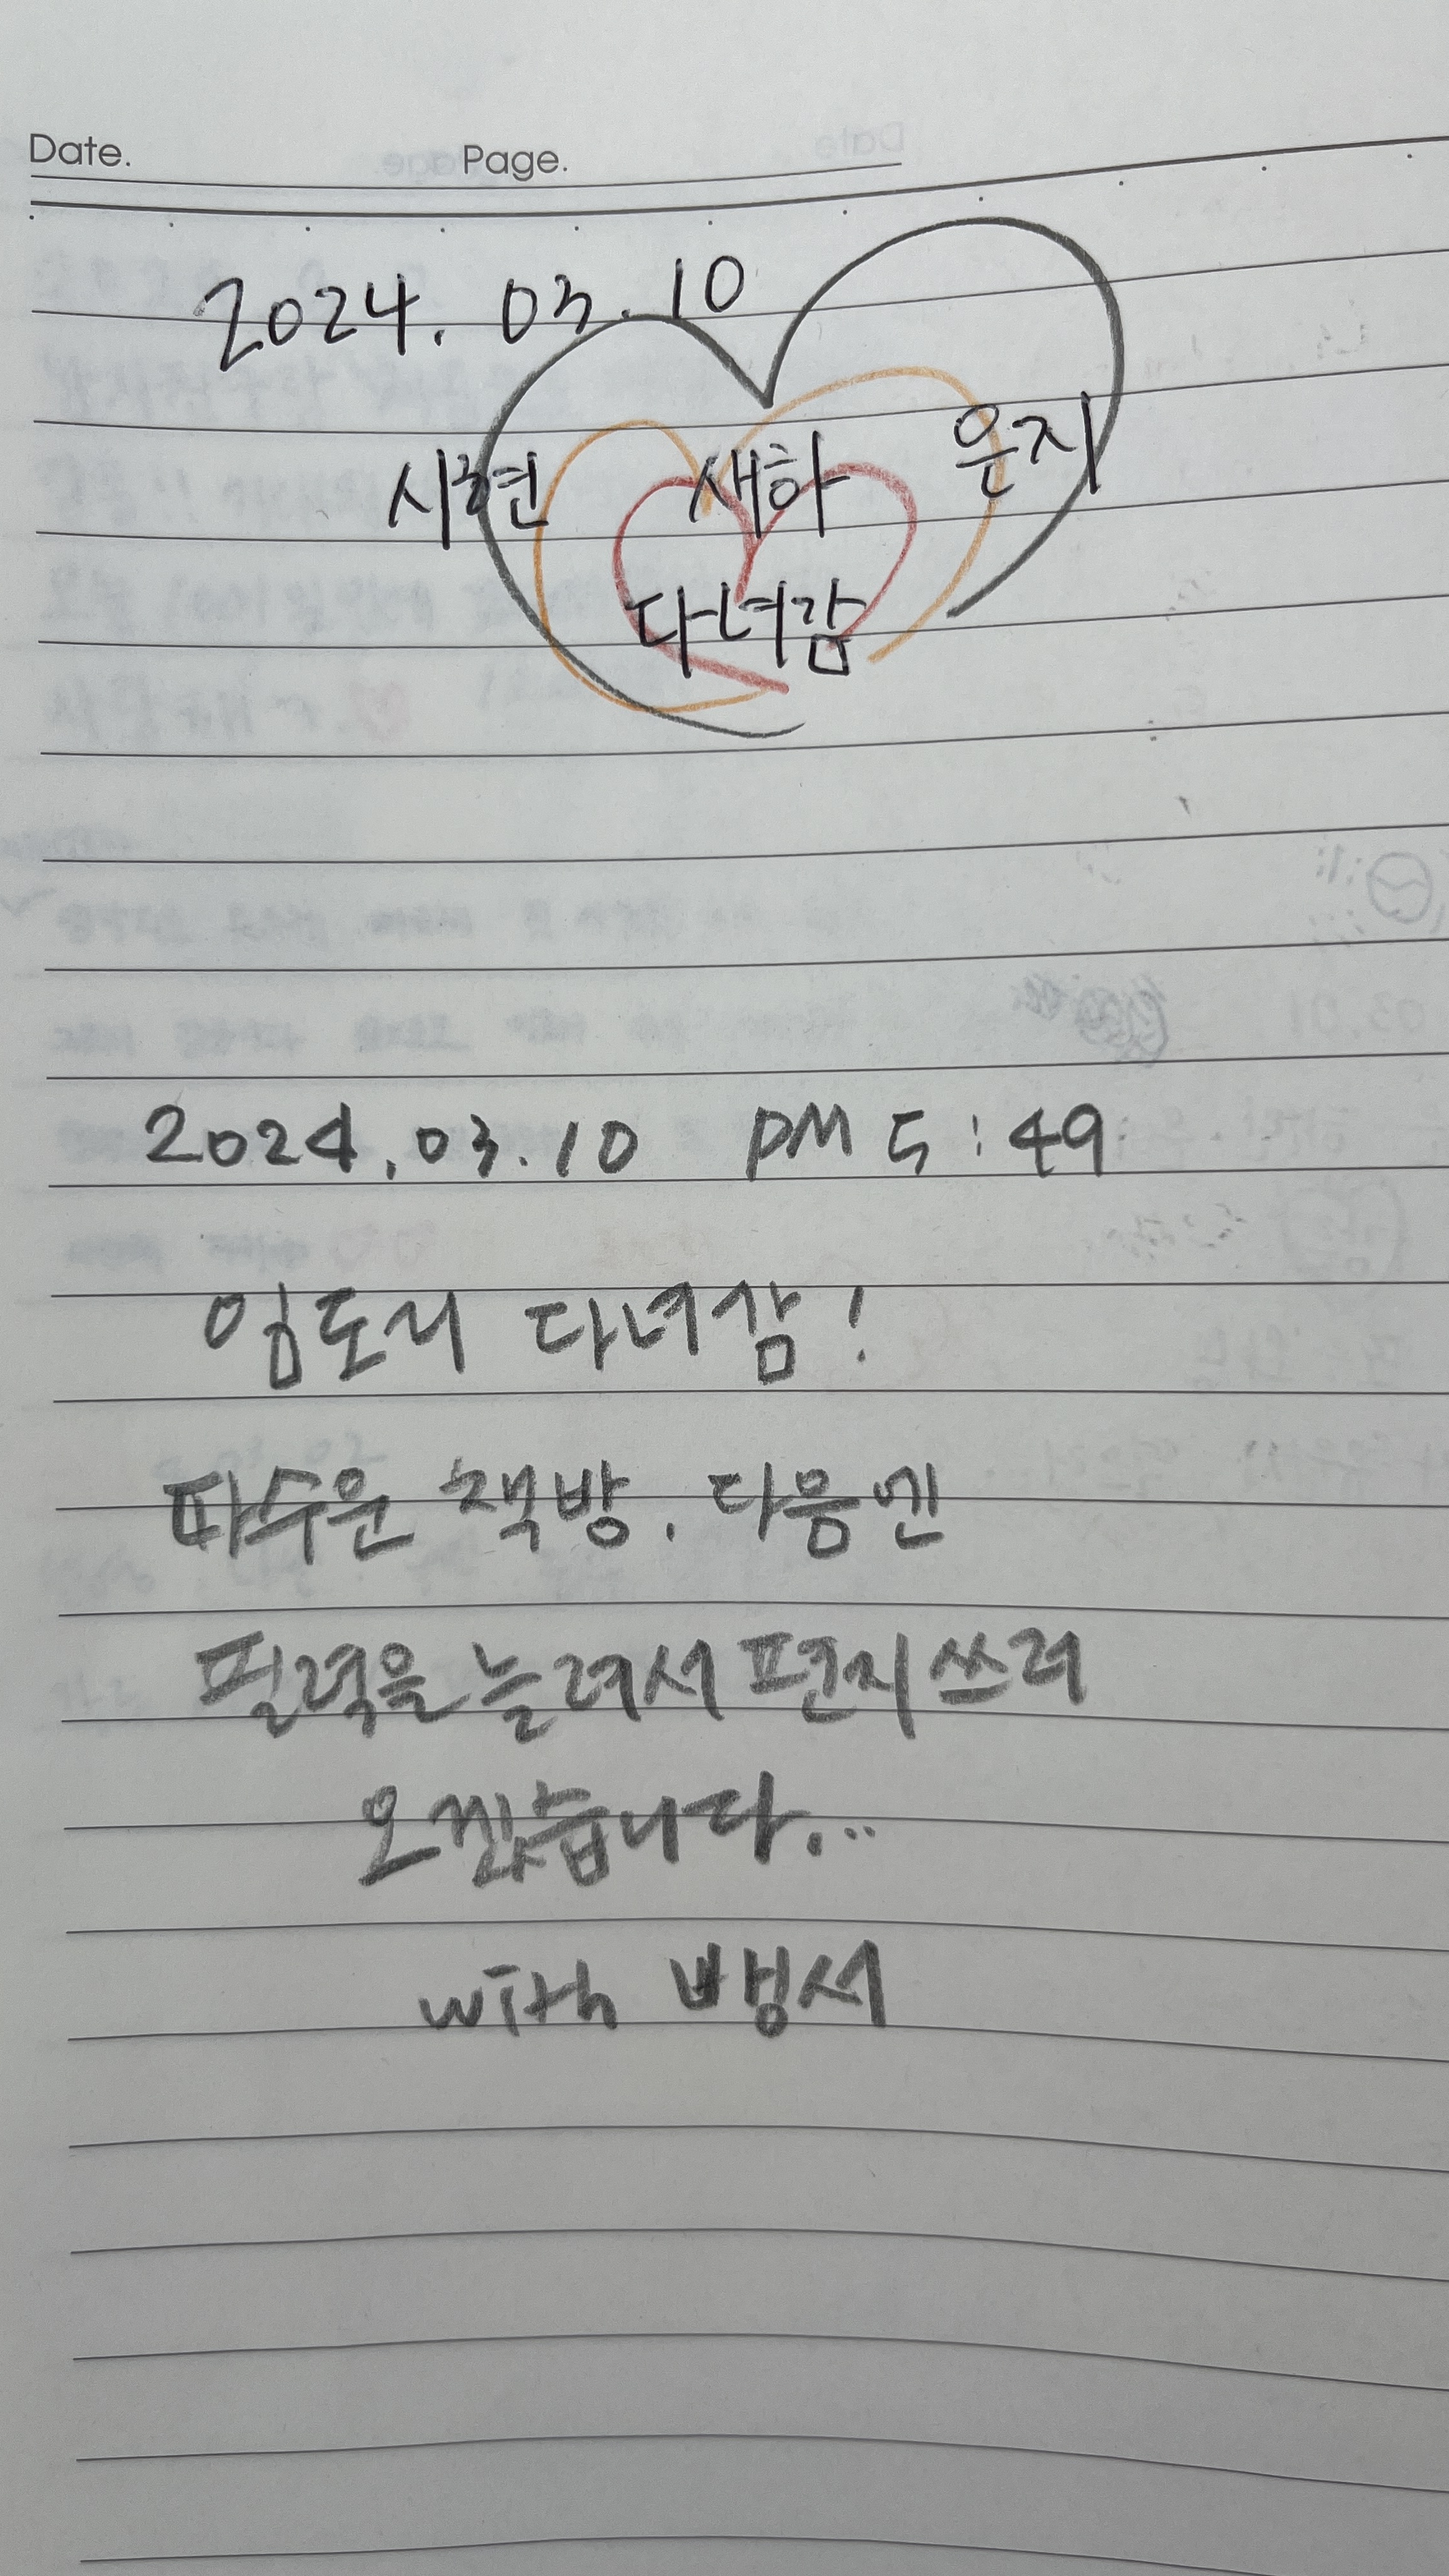 Date. Page.
2024. 03. 10
시현 새하 은지
다녀감
2024.03.10 PM 5:49
임도리 다녀감!
파수운 책방. 다음엔
필력을 늘려서 편지 쓰러
오겠습니다...
with 뱅서